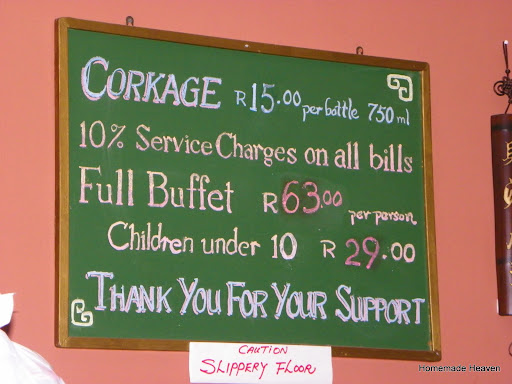 CORKAGE R 15.00 per bottle 750 ml
10% Service Charges on all bills
Full Buffet R 63.00 per person
Children under 10 R 29.00
THANK YOU FOR YOUR SUPPORT
CAUTION
SLIPPERY FLOOR
Homemade Heaven